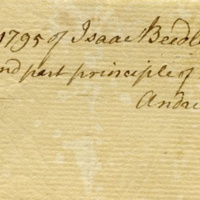 1795 of Isaac Beedl
nd part principle of
Andre